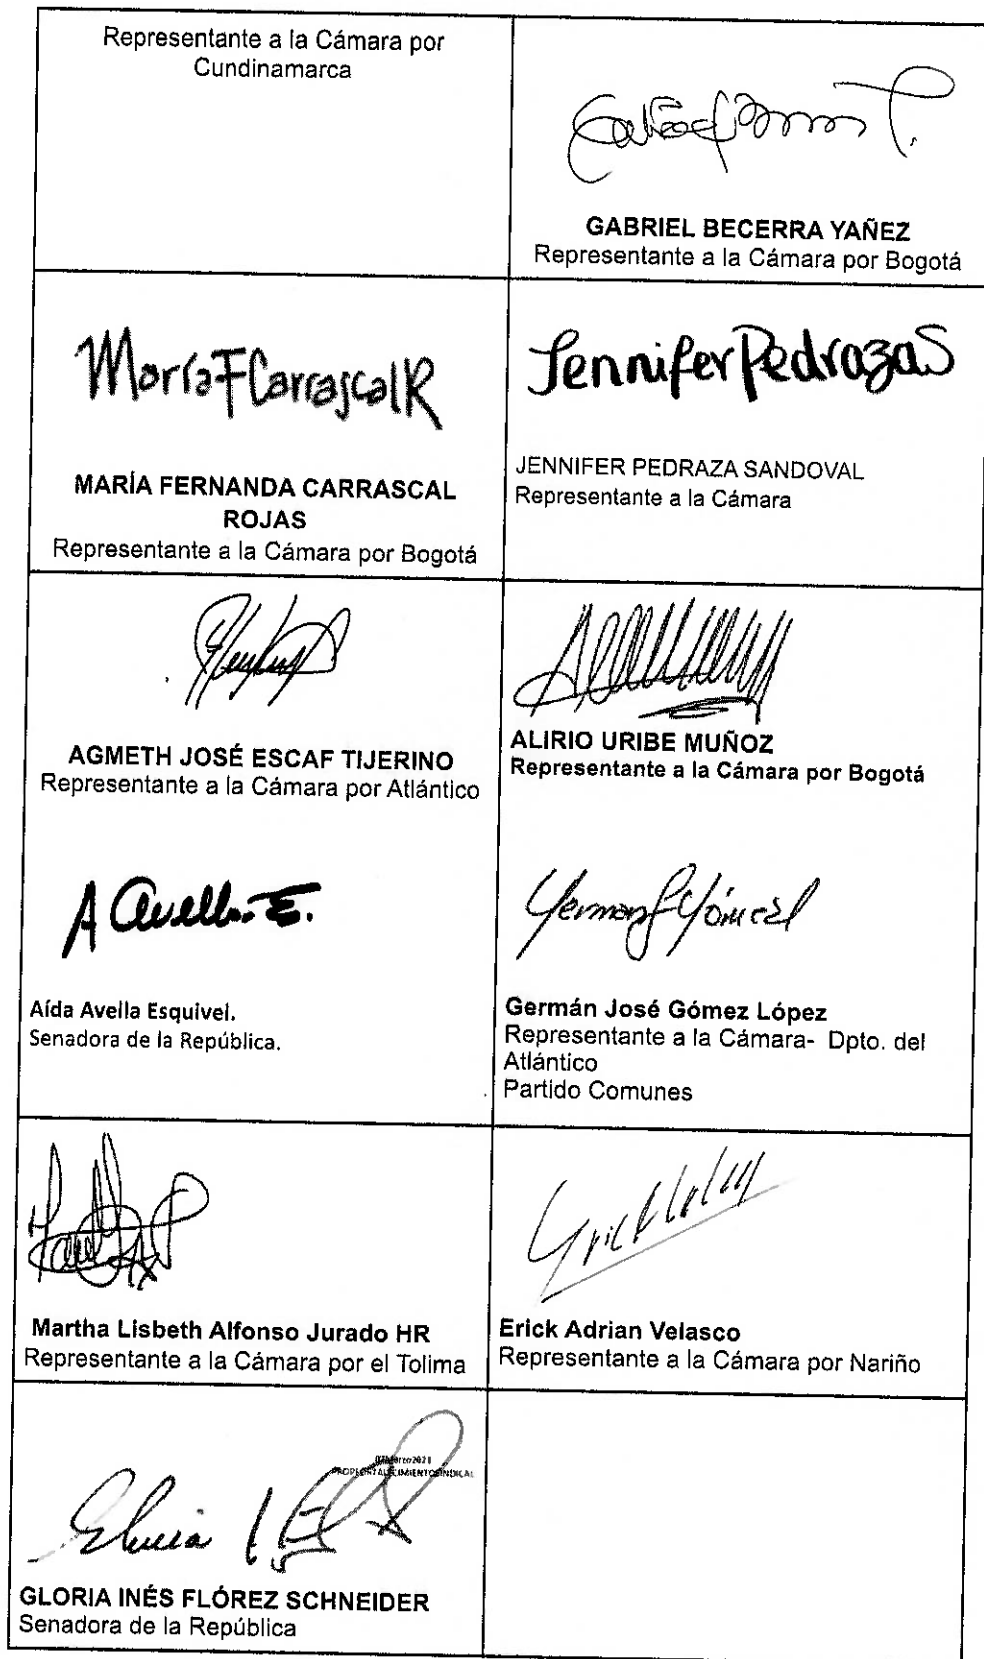 Representante a la Cámara por
Cundinamarca
GABRIEL BECERRA YAÑEZ
Representante a la Cámara por Bogotá
MaríaFCarrascalR
MARÍA FERNANDA CARRASCAL
ROJAS
Representante a la Cámara por Bogotá
Jennifer Pedraza S
JENNIFER PEDRAZA SANDOVAL
Representante a la Cámara
AGMETH JOSÉ ESCAF TIJERINO
Representante a la Cámara por Atlántico
ALIRIO URIBE MUÑOZ
Representante a la Cámara por Bogotá
A Avella E.
Aída Avella Esquivel.
Senadora de la República.
Germán José Gómez López
Representante a la Cámara- Dpto. del
Atlántico
Partido Comunes
Martha Lisbeth Alfonso Jurado HR
Representante a la Cámara por el Tolima
Erick Adrian Velasco
Representante a la Cámara por Nariño
GLORIA INÉS FLÓREZ SCHNEIDER
Senadora de la República